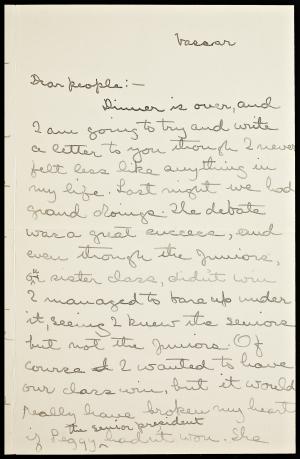 Vassar
Dear people:—
Dinner is over, and
I am going to try and write
a letter to you though I never
felt less like anything in
my life. Last night we had
grand doings. The debate
was a great success, and
even though the Juniors,
our sister class, didn't win
I managed to bare up under
it, seeing I knew the seniors
but not the Juniors. Of
course I wanted to have
our class win, but it would
really have broken my heart
the senior president
if Peggy hadn't won. She